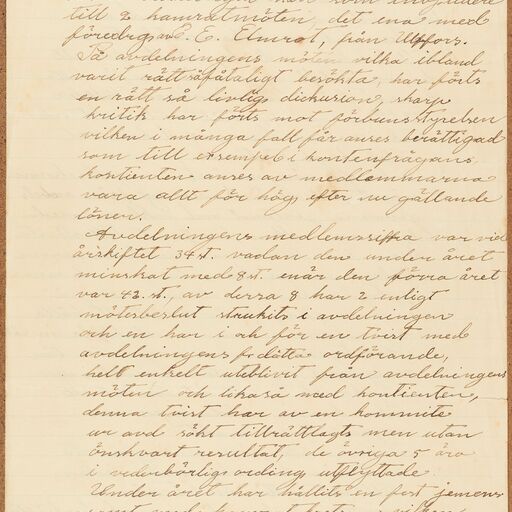 till 2 kamratmöten, det ena med
föredrag av E. E. Elmrot, från Ulfors.
På avdelningens möten vilka ibland
varit rätt såfåtaligt besökta, har förts
en rätt så livlig diskusion, skarp
kritik har förts mot förbunsstyrelsen
vilken i många fall får anses berättigad
som till exsempel i kontenfrågans
kontienten anses av medlemmarna
vara allt för hög, efter nu gällande
löner.
Avdelningens medlemssiffra var vid
årskiftet 34 st. vadan den under året
minskat med 8 st. enär den förra året
var 42 st., av dessa 8 har 2 enligt
mötesbeslut strukits i avdelningen
och en har i och för en tvist med
avdelningens fr detta ordförande,
helt enkelt uteblivit från avdelningens
möten och likaså med kontienten,
denna tvist har av en kommite
ur avd sökt tillrättlagts men utan
önskvart resultat, de övriga 5 äro
i vederbörlig ording utflyttade.
Under året har hållits en fest jemens